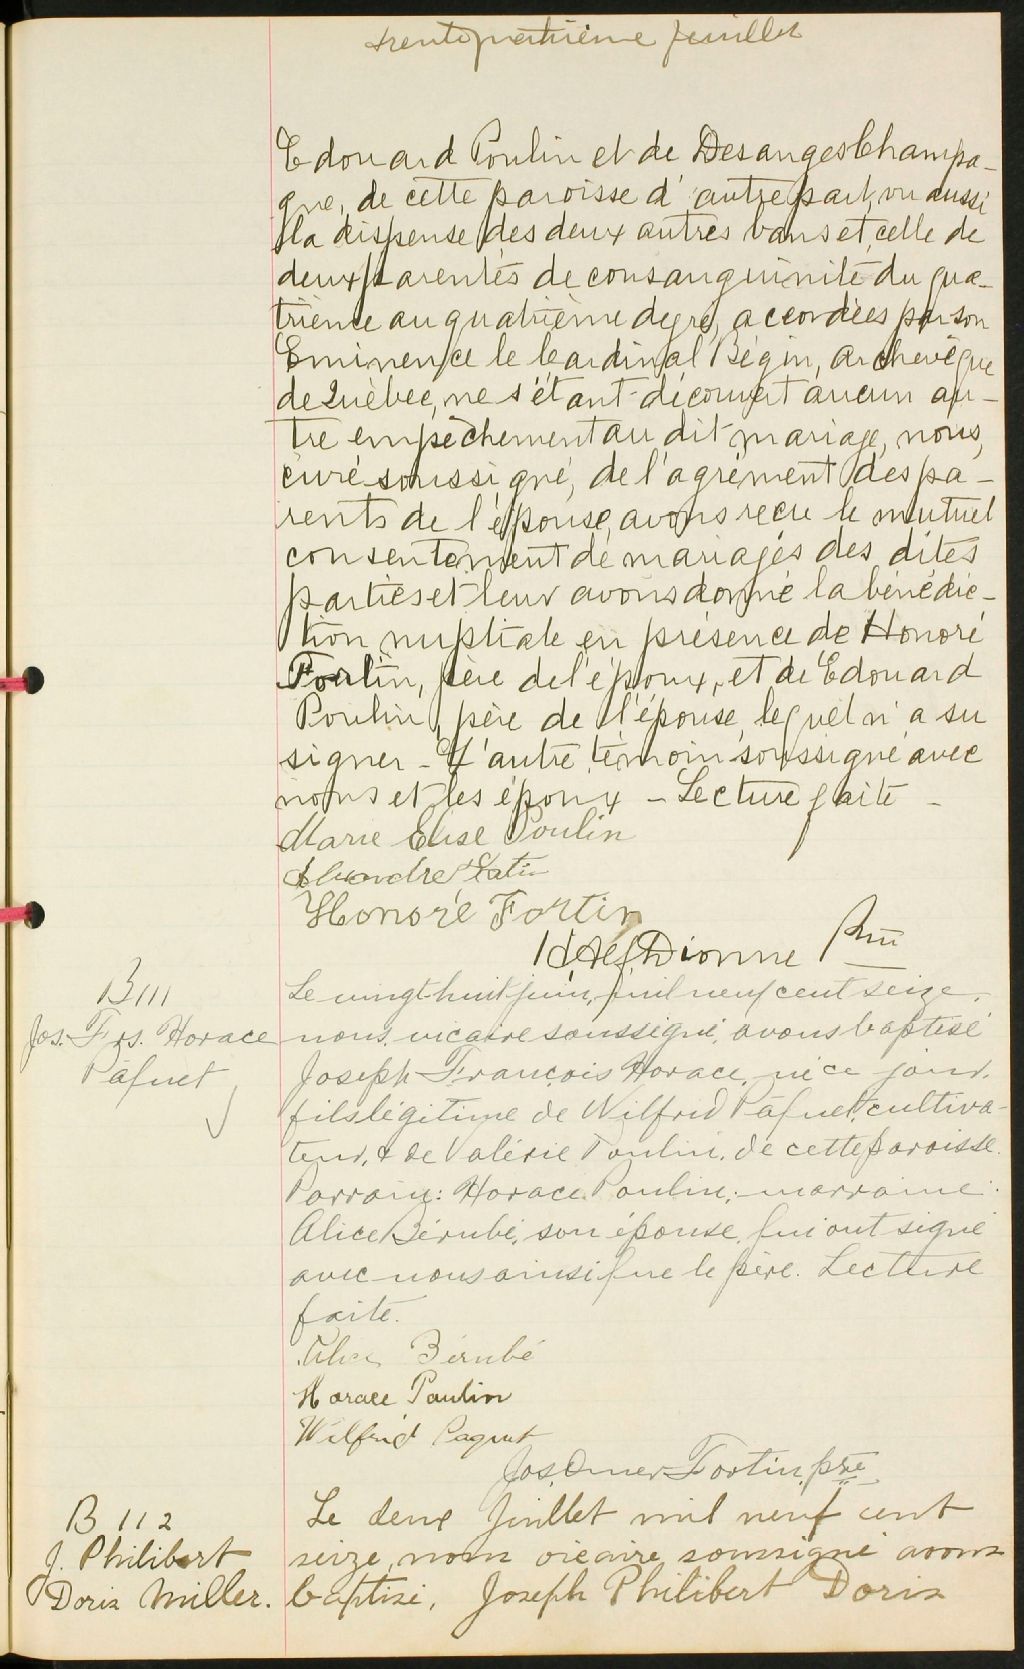 trente quatrième feuillet
Edouard Poulin et de Desanges Champa-
gne, de cette paroisse d'autre part, vu aussi
la dispense des deux autres bans et celle de
deux parentés de consanguinité du qua-
trième au quatrième degré, accordées par son
Eminence le Cardinal Bégin, archevêque
de Québec, ne s'étant découvert aucun au-
tre empêchement au dit mariage, nous,
curé soussigné, de l'agrément des pa-
rents de l'épouse, avons recu le mutuel
consentement de mariages des dites
parties et leur avons donné la bénédic-
tion nuptiale en présence de Honoré
Fortin, père de l'époux, et de Edouard
Poulin, père de l'épouse, lequel n'a su
signer - L'autre témoin soussigné avec
nous et les époux - Lecture faite -
Marie Elise Poulin
Honoré Fortin
Dionne Ptre
B111
Jos. Frs. Horace
Pâquet
Le vingt-huit juin, mil neuf cent seize,
nous, vicaire soussigné, avons baptisé
Joseph François Horace, né ce jour,
fils légitime de Wilfrid Pâquet, cultiva-
teur, & de Valérie Poulin, de cette paroisse.
Parrain: Horace Poulin; marraine:
Alice Bérubé, son épouse, qui ont signé
avec nous ainsi que le père. Lecture
faite.
Alice Bérubé
Horace Poulin
Wilfrid Paquet
Jos. Omer Fortin, ptre
B 112
J. Philibert
Doris Miller.
Le deux Juillet mil neuf cent
seize, nous vicaire soussigné avons
baptisé, Joseph Philibert Doris